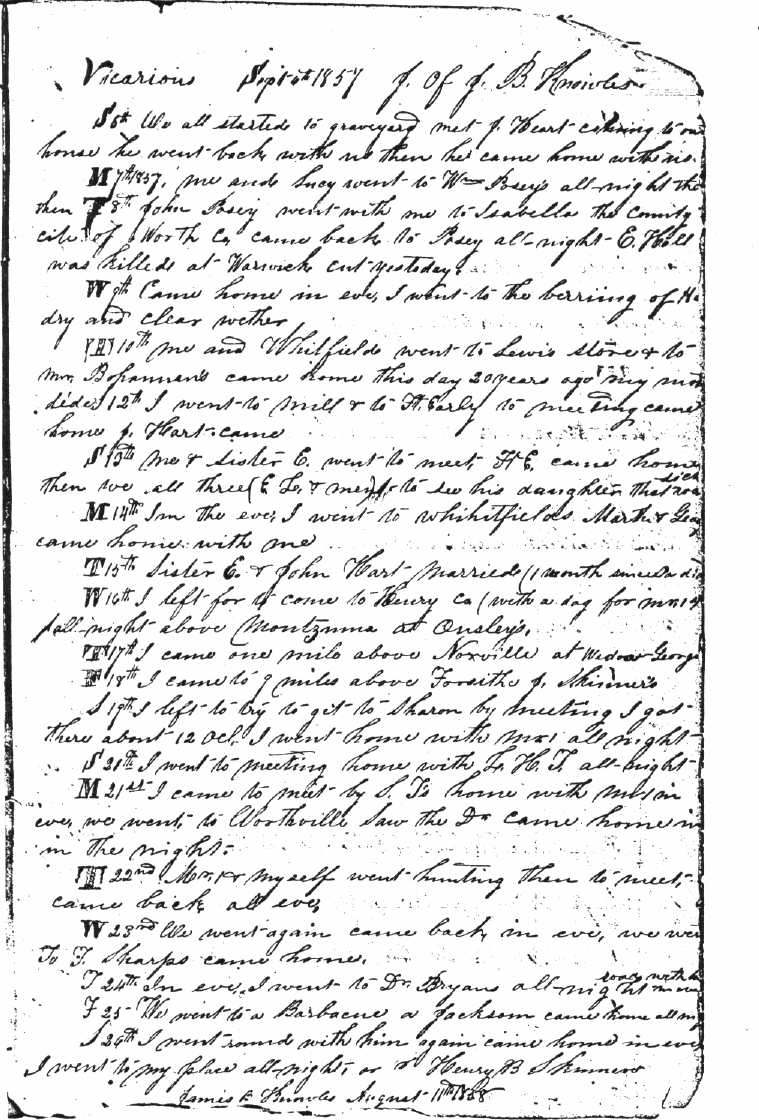 Vicarious Sept 6th 1857 J. Of J. B. Knowles
S 6th We all started to graveyard met J. Heart coming to our
house he went back with us then he came home with us.
M 7th 1857, me and Lucy went to Wm Posey's all-night the
then T 8th John Posey went with me to Isabella the county
cite of Worth Co came back to Posey all-night E. Hall
was killed at Warwick cut yesteday.
W 9th Came home in eve, I went to the berriing of H
dry and clear wether
10th me and Whitfield went to Lewis store & to
Mr. came home this day 20 years ago my mo
dide 12th I went to mill & to Ft. Early to meeting came
home J. Hart came
S 13th Me & Sister E. went to meet, Ft E, came home
then we all three (E L. & me) to see his daughter that was sick
M 14th In the eve, I went to Whihitfields Marthe &
came home with me
T 15th Sister E. & John Hart Married (1 month since
W 16th I left for to come to Henry Co (with a dag for
all-night above Montzuma at Ousley's,
17th I came one mile above Noxville at Widow George
F 18th I came to 9 miles above Forsithe J. Skinner's
S 19th I left to try to get to Sharon by meeting I got
there about 12 Ocl, I went home with all night
S 21th I went to meeting home with L. H. T. all-night
M 21st I came to meet by S. T's home with in
eve, we went, to Worthville Saw the Dr came home in
in the night.
T 22nd & myself went hunting then to meet,
came back at eve,
W 23rd We went again came back, in eve, we we
To F. Sharps came home.
T 24th In eve, I went to Dr. Bryans all-night
F 25 We went to a Barbacue a Jackson came home all
S 26th I went round with him again came home in eve
I went to my place all-night, or Henry B Skinner
James B Knowles August 11th 1858